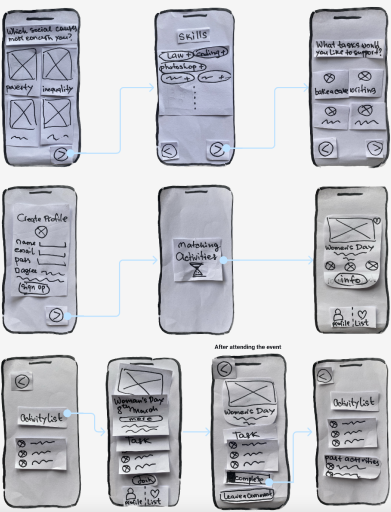 Which social causes
most concern you?
poverty
inequality
Skills
Law +
Coding +
photoshop +
What tasks would
you like to support?
bake a cake
writing
Create Profile
name
email
pass
Sign up
matching
Activities
Women's Day
info
Profile
List
After attending the event
Activity List
Woman's Day
8th March
more
Task
Profile
List
Women's Day
Task
Complete
Leave a Comment
Activity List
past activities